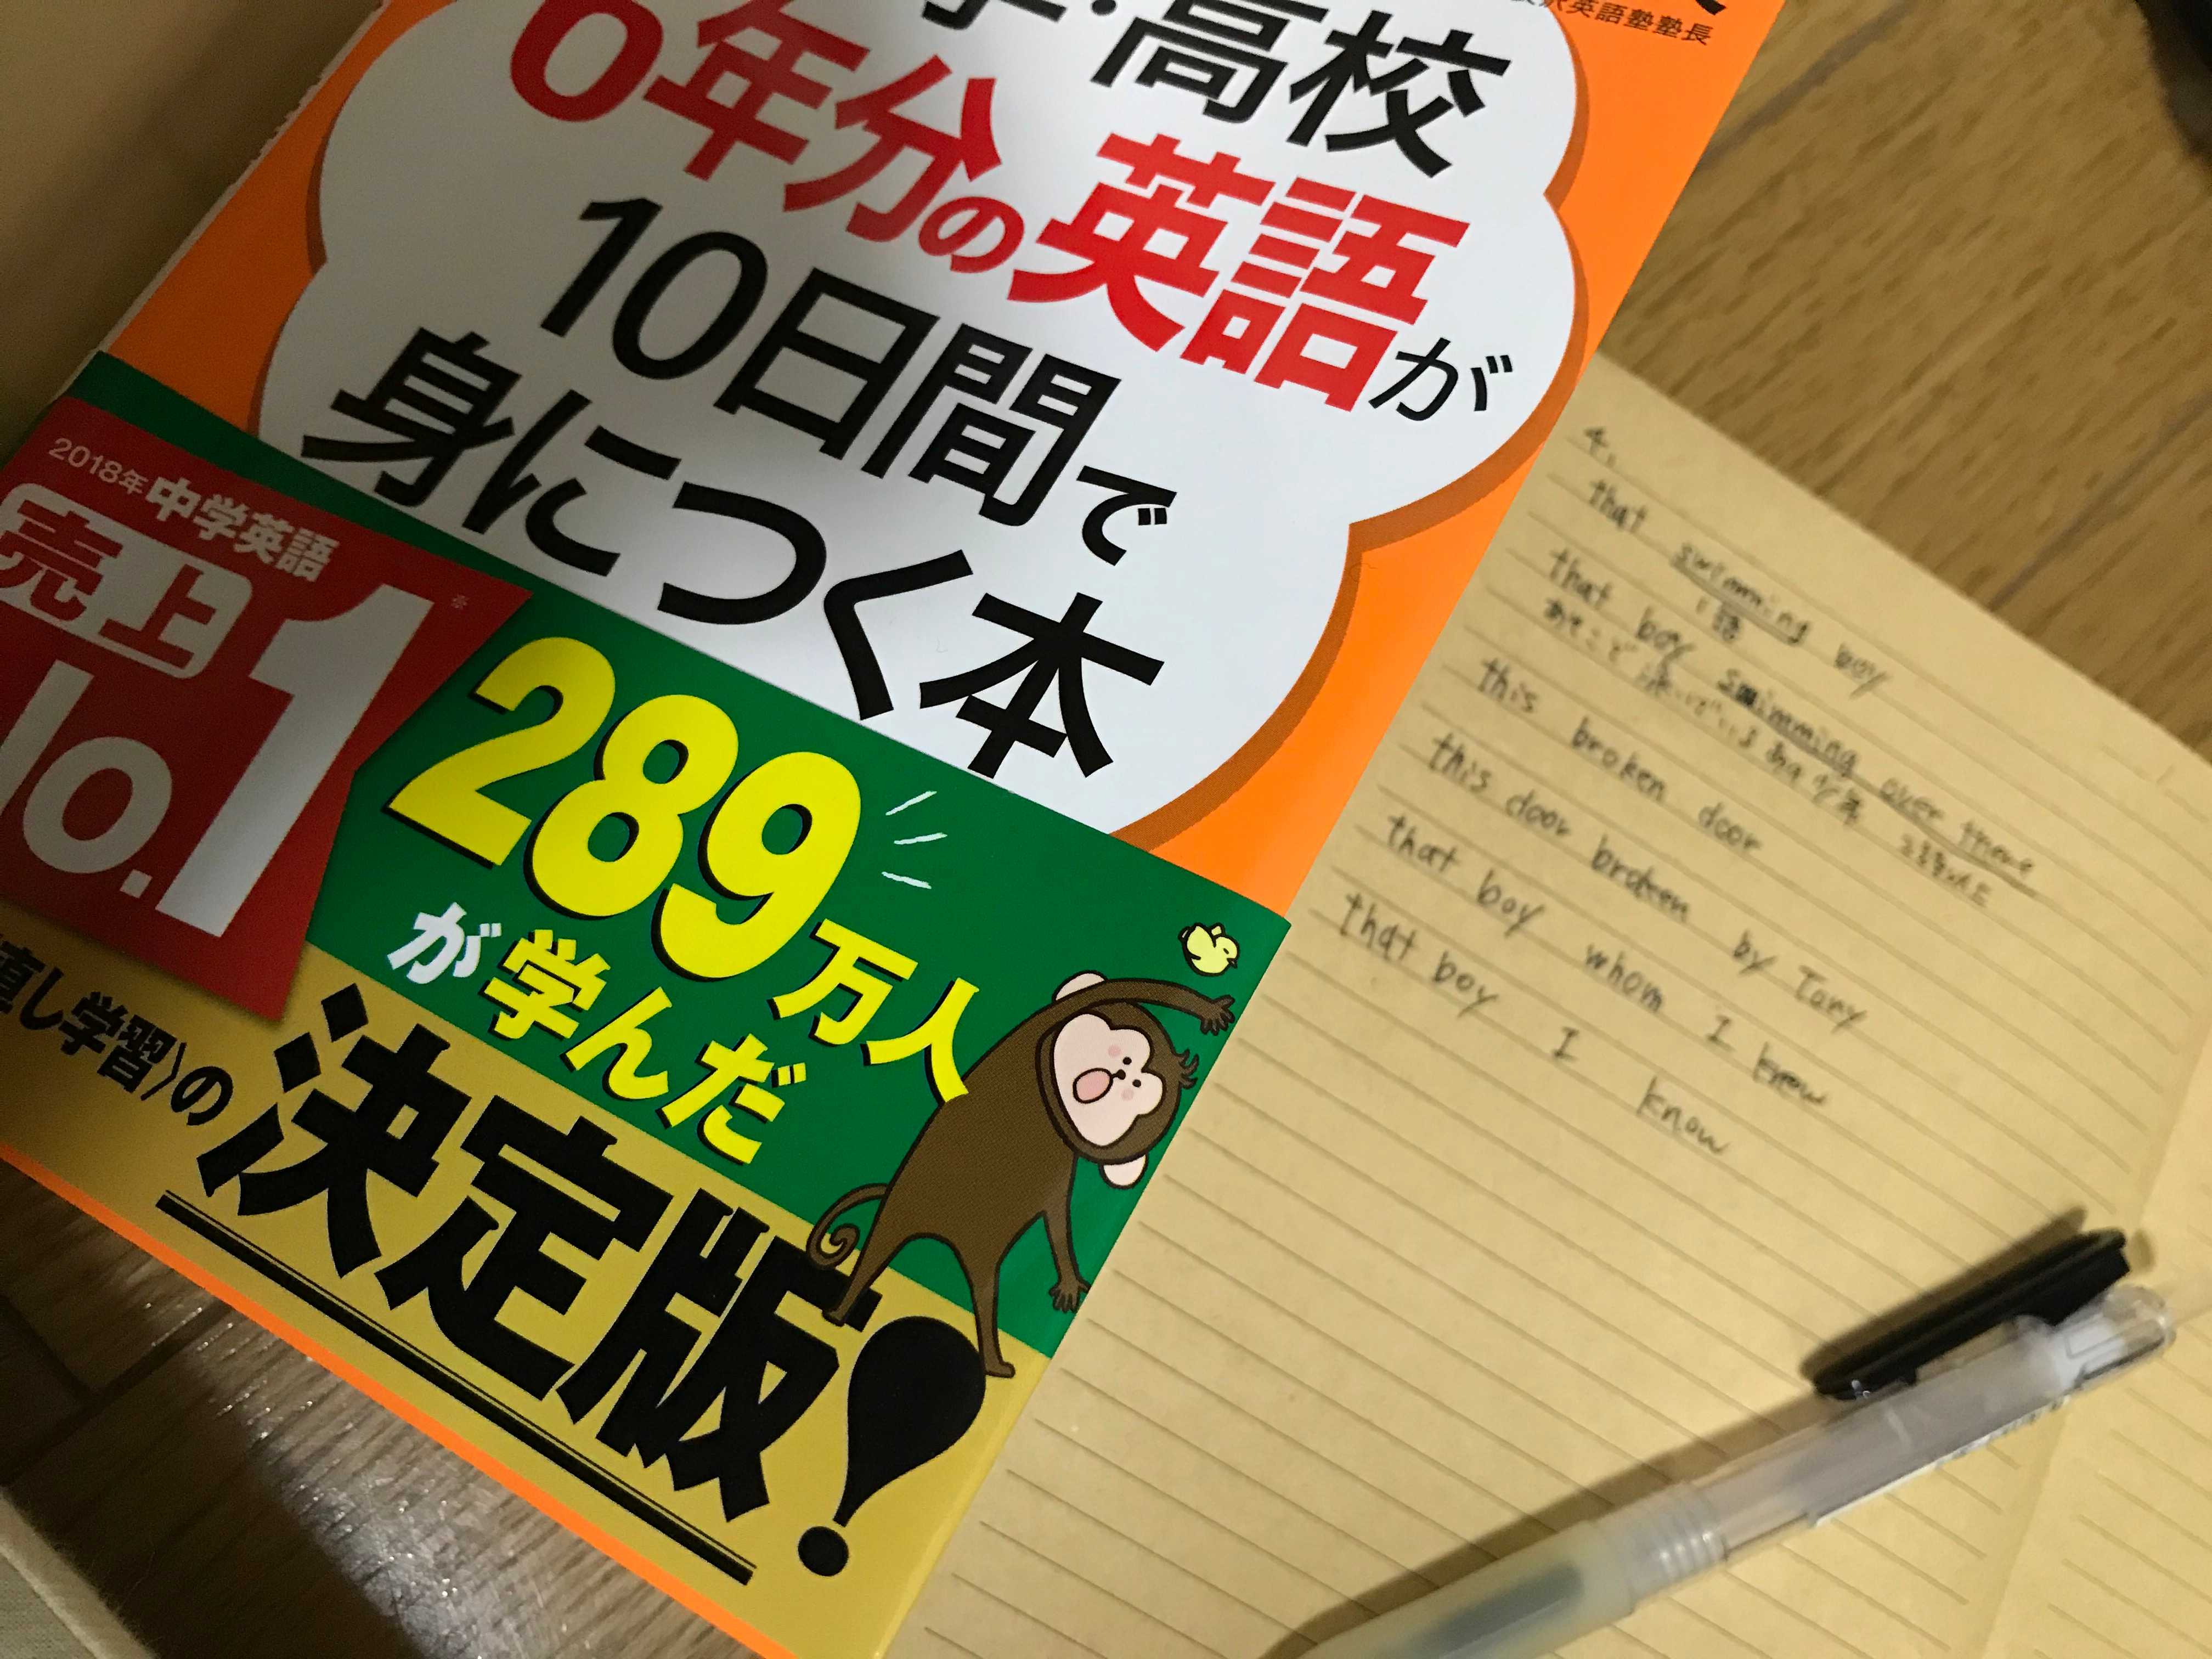 英語塾塾長
・高校
6年分の英語が
10日間で
身につく本
2018年 中学英語
売上
No.1
※
289万人
が学んだ
直し学習〉の
決定版!
4.
that swimming boy
1語
that boy swimming over there
あそこで泳いでいるあの少年 2語以上
this broken door
this door broken by Tony
that boy whom I knew
that boy I know